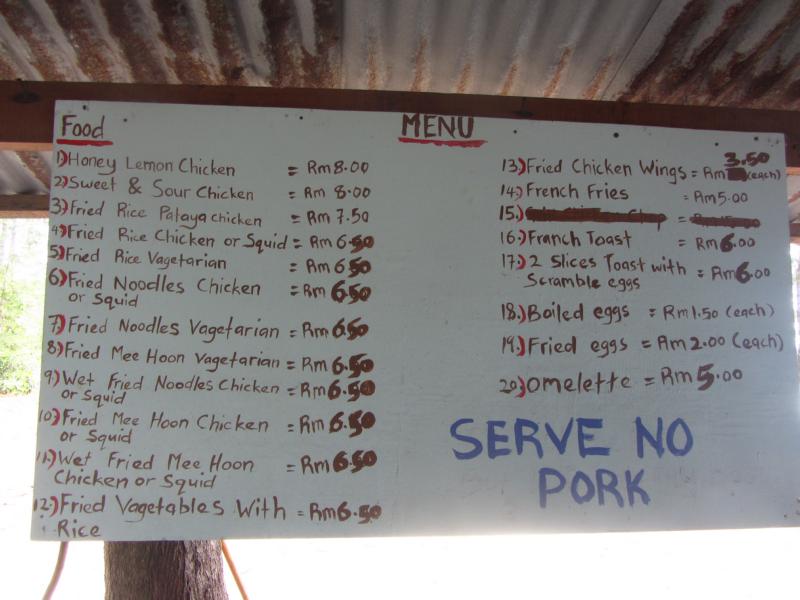 MENU
Food
1) Honey Lemon Chicken = Rm 8.00
2) Sweet & Sour Chicken = Rm 8.00
3) Fried Rice Pataya chicken = Rm 7.50
4) Fried Rice Chicken or Squid = Rm 6.50
5) Fried Rice Vagetarian = Rm 6.50
6) Fried Noodles Chicken = Rm 6.50
or Squid
7) Fried Noodles Vagetarian = Rm 6.50
8) Fried Mee Hoon Vagetarian = Rm 6.50
9) Wet Fried Noodles Chicken = Rm 6.50
or Squid
10) Fried Mee Hoon Chicken = Rm 6.50
or Squid
11) Wet Fried Mee Hoon = Rm 6.50
Chicken or Squid
12) Fried Vagetables With = Rm 6.50
Rice
13.) Fried Chicken Wings = Rm 3.50 (each)
14.) French Fries = Rm 5.00
15.) =
16.) Franch Toast = Rm 6.00
17.) 2 Slices Toast with = Rm 6.00
Scramble eggs
18.) Boiled eggs = Rm 1.50 (each)
19.) Fried eggs = Rm 2.00 (each)
20.) Omelette = Rm 5.00
SERVE NO
PORK